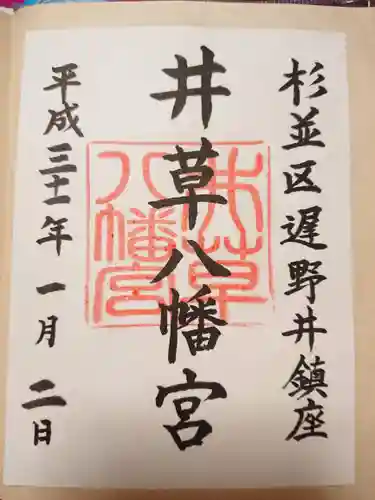 杉並区遅野井鎮座
井草八幡宮
井草八幡宮
平成三十一年一月二日